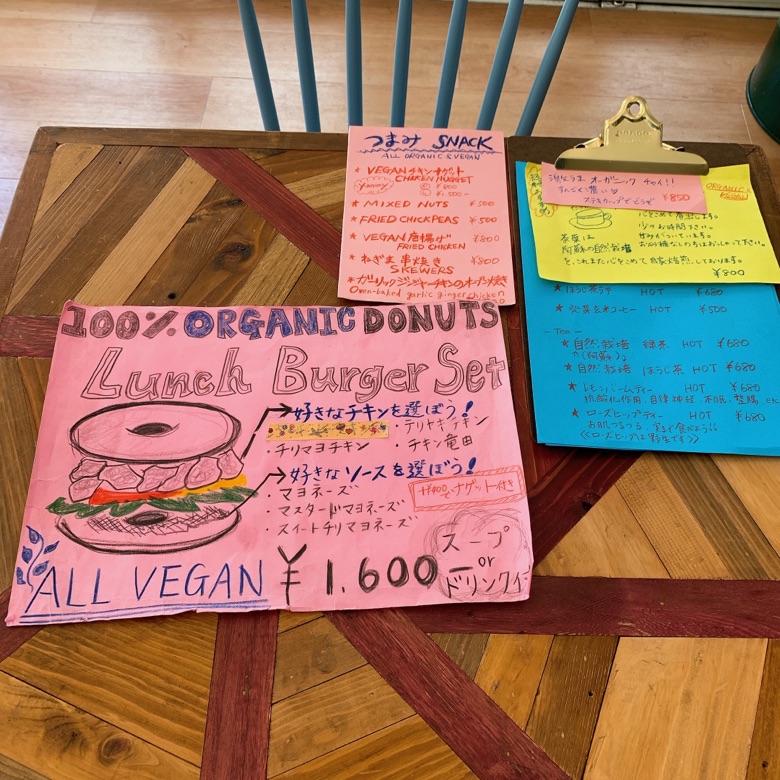 つまみ SNACK
ALL ORGANIC & VEGAN
★ VEGAN チキンナゲット
CHICKEN NUGGET
Yummy
¥600
¥1,500-
★ MIXED NUTS ¥500
★ FRIED CHICKPEAS ¥500
★ VEGAN 唐揚げ ¥800
FRIED CHICKEN
★ ねぎま 串焼き ¥800
SKEWERS
★ ガーリックジンジャーチキンのオーブン焼き
Oven-baked garlic ginger chicken
オーガニック チャイ!!
¥850
ORGANIC &
VEGAN
茶葉は
阿蘇の自然栽培
¥800
★ ほうじ茶ラテ HOT ¥680
HOT ¥500
- Tea -
★ 自然栽培 緑茶 HOT ¥680
(阿蘇)
★ 自然栽培 ほうじ茶 HOT ¥680
★ レモンバームティー HOT ¥680
抗酸化作用、自律神経、不眠、整腸、etc
★ ローズヒップティー HOT ¥680
お肌つるつる、実まで食べよう!!
《ローズヒップは野生です》
100% ORGANIC DONUTS
Lunch Burger Set
好きなチキンを選ぼう!
・テリヤキチキン
・チリマヨチキン ・チキン竜田
好きなソースを選ぼう!
・マヨネーズ
・マスタードマヨネーズ
・スイートチリマヨネーズ
+¥400でナゲット付き
ALL VEGAN ¥1,600
スープ
or
ドリンク付